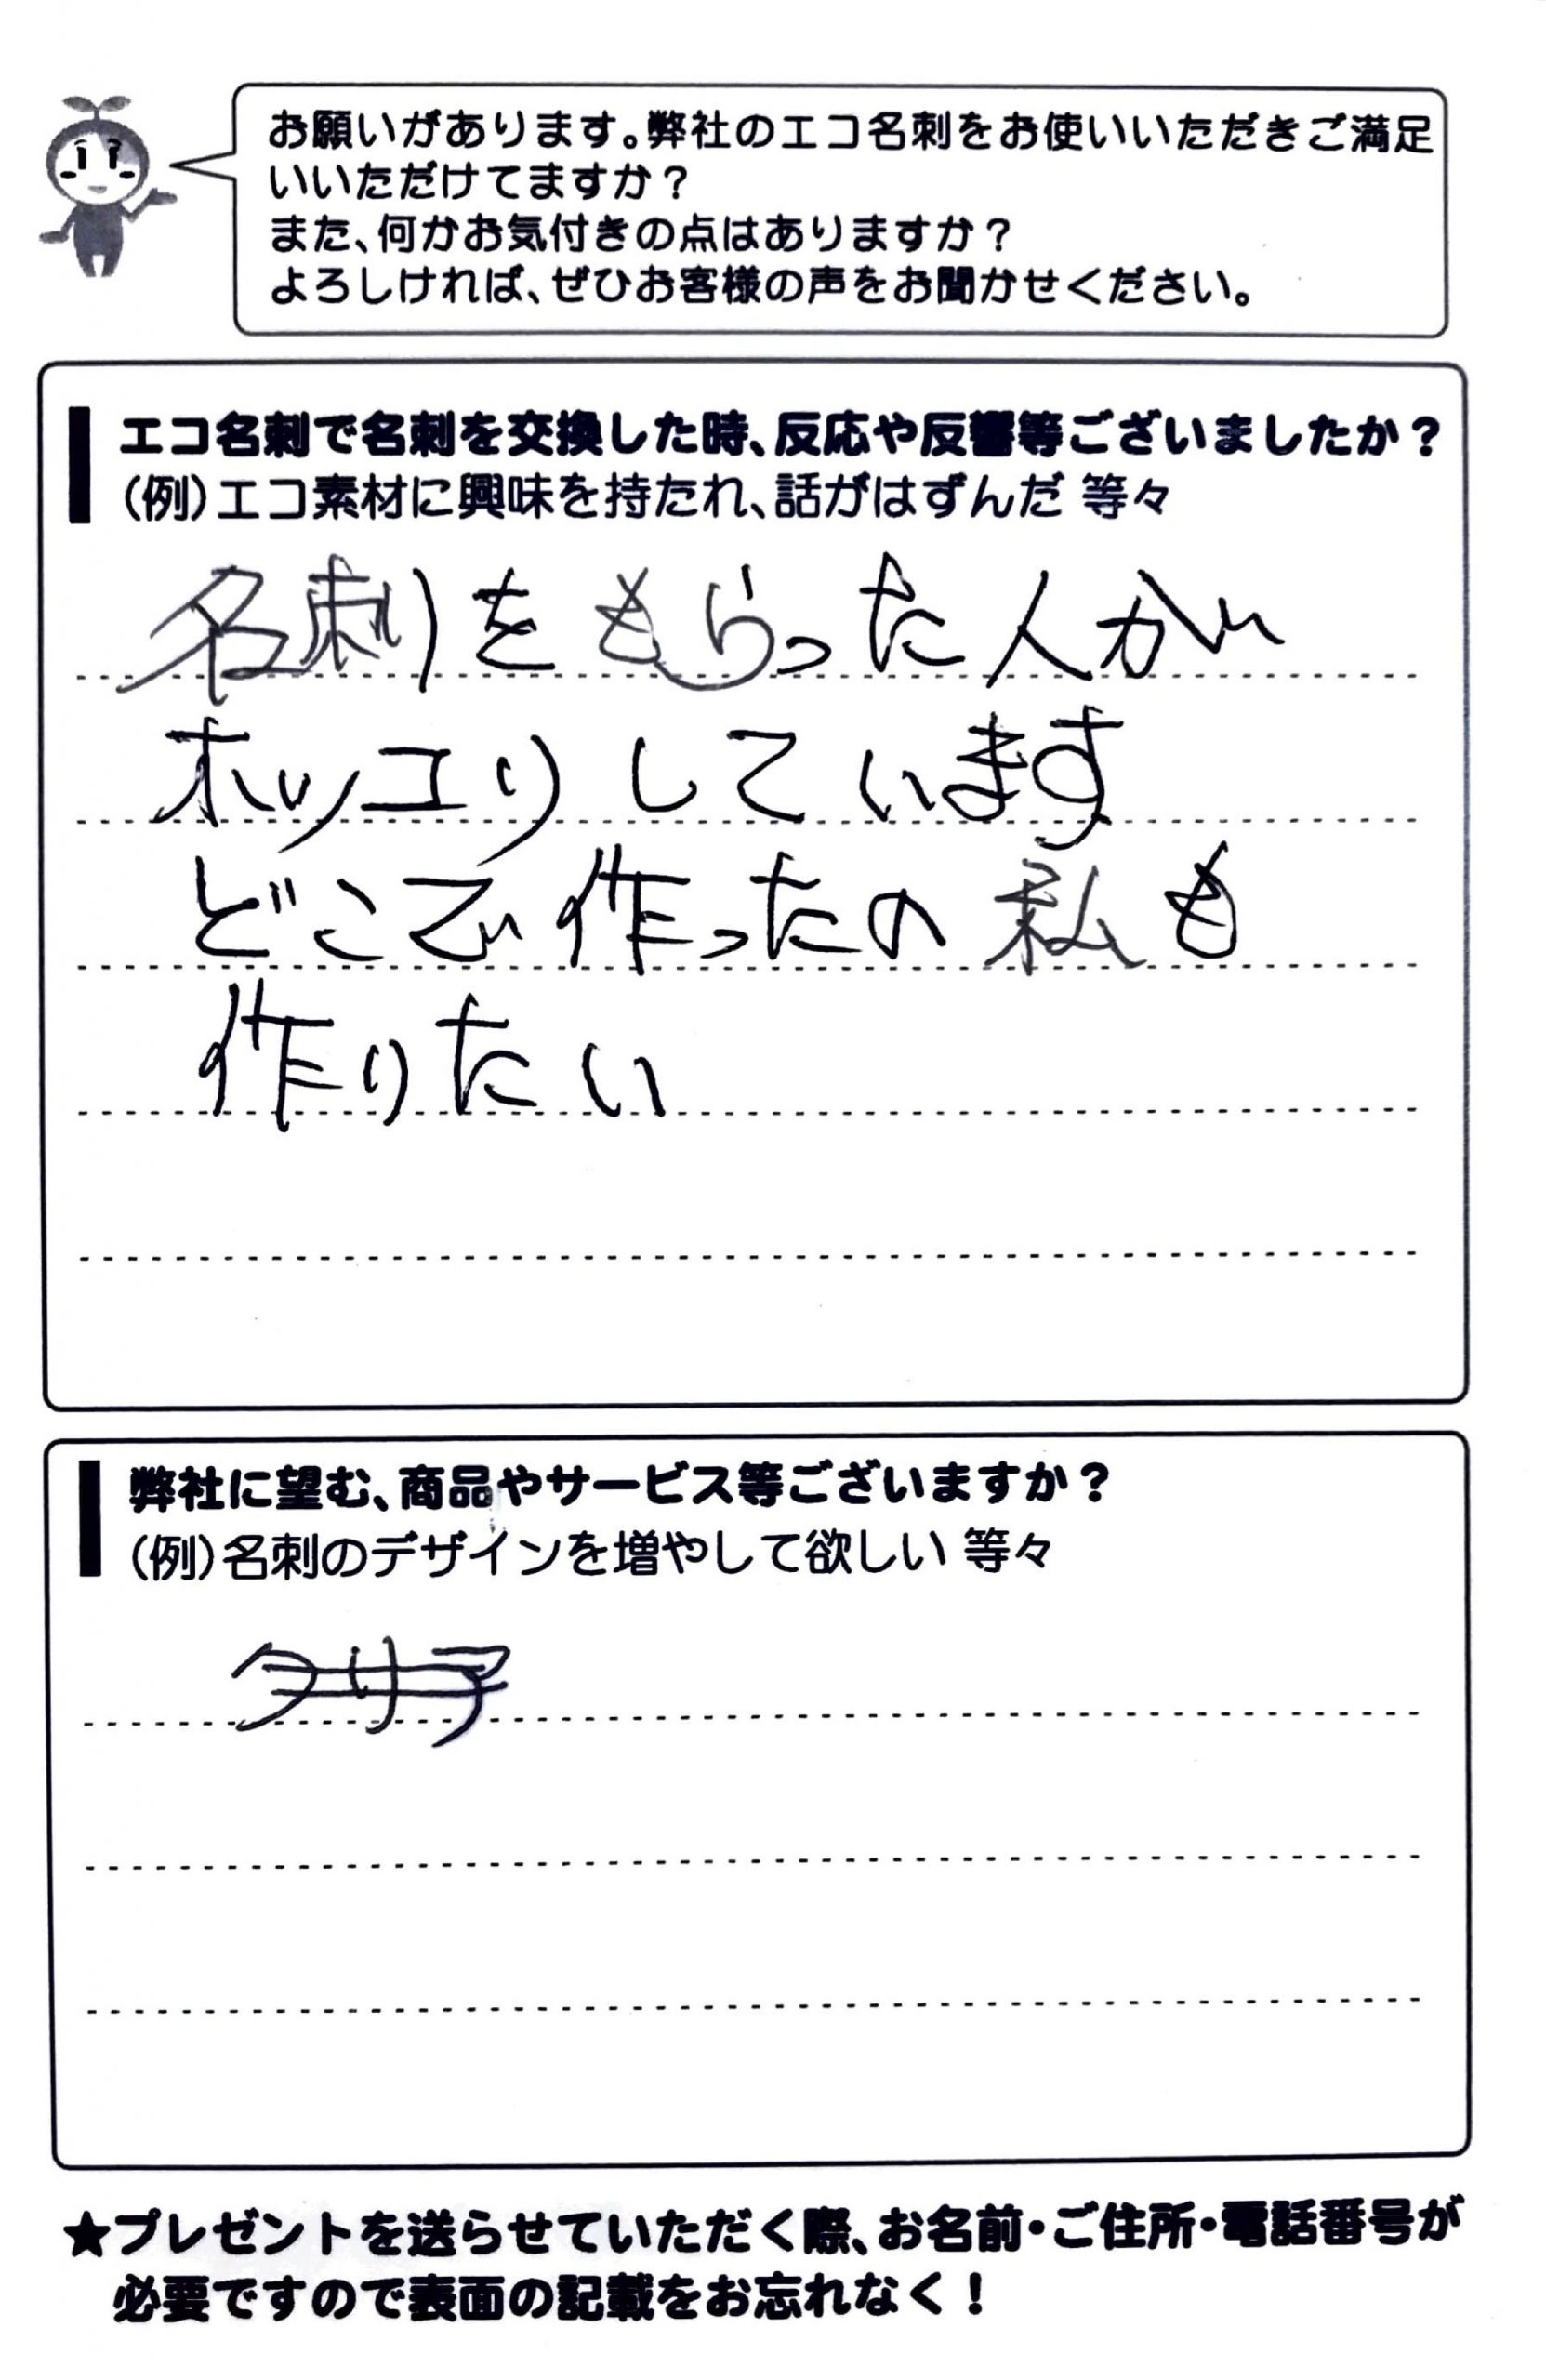 お願いがあります。弊社のエコ名刺をお使いいただきご満足
いいただけてますか？
また、何かお気付きの点はありますか？
よろしければ、ぜひお客様の声をお聞かせください。
エコ名刺で名刺を交換した時、反応や反響等ございましたか？
（例）エコ素材に興味を持たれ、話がはずんだ 等々
名刺りをもらった人が
ホッコリしています
どこで作ったの 私も
作りたい
弊社に望む、商品やサービス等ございますか？
（例）名刺のデザインを増やして欲しい 等々
★プレゼントを送らせていただく際、お名前・ご住所・電話番号が
必要ですので表面の記載をお忘れなく！